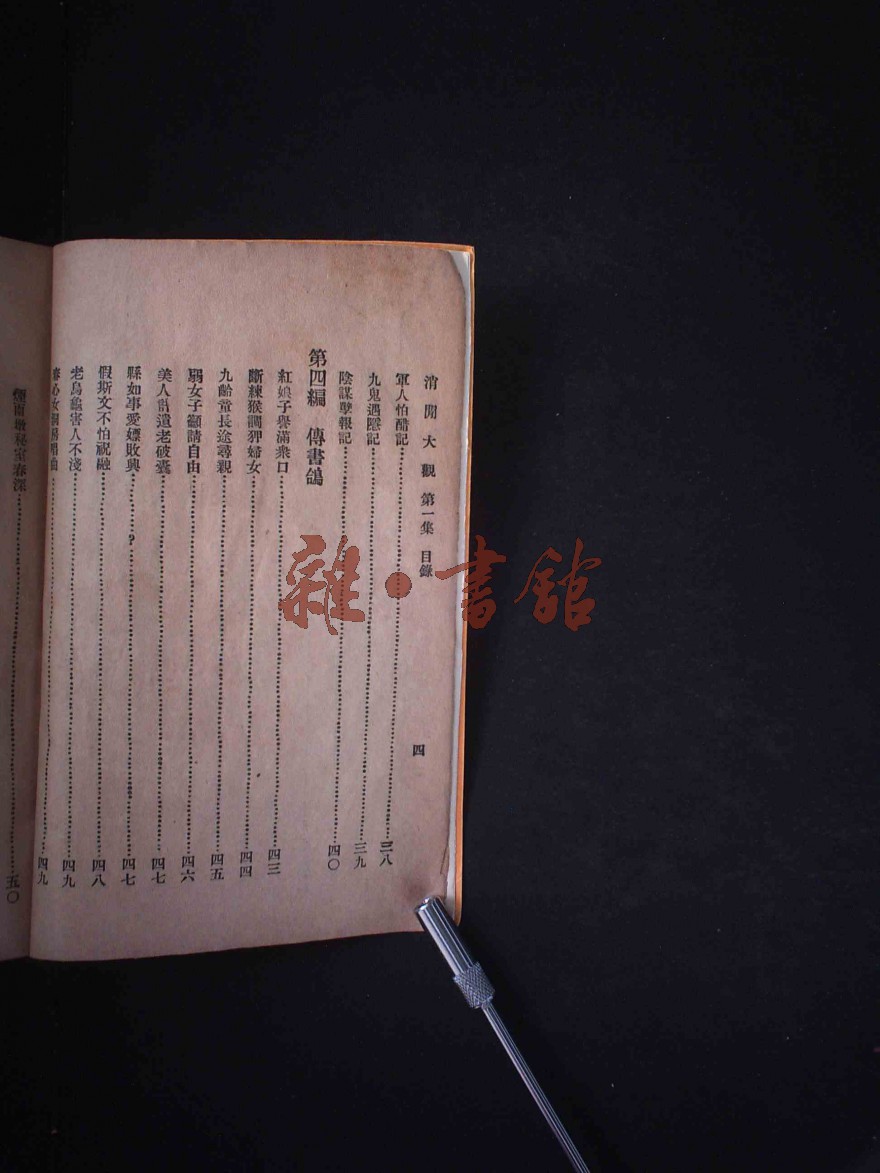 消閒大觀 第一集 目錄 四
軍人怕醋記 三八
九鬼遇騐記 三九
陰謀孽報記 四〇
第四編 傳書鴿
紅娘子譽滿衆口 四三
斷練猴調狎婦女 四四
九齡童長途尋親 四五
弱女子籲請自由 四六
美人計遺老破囊 四七
縣知事愛嫖敗興 ? 四七
假斯文不怕祝融 四八
老烏龜害人不淺 四九
女 唱曲 四九
煙雨墩秘室春深 五〇
雜·書館